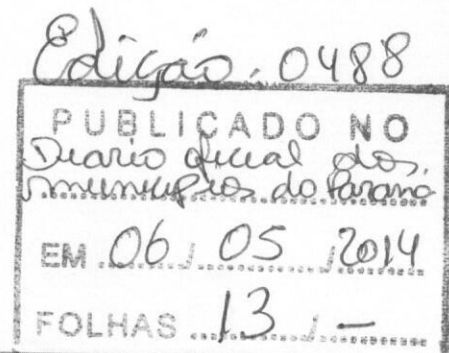 Edição: 0488
PUBLICADO NO
Diario oficial dos
municipios do Paraná
EM 06 / 05 / 2014
FOLHAS 13 / —